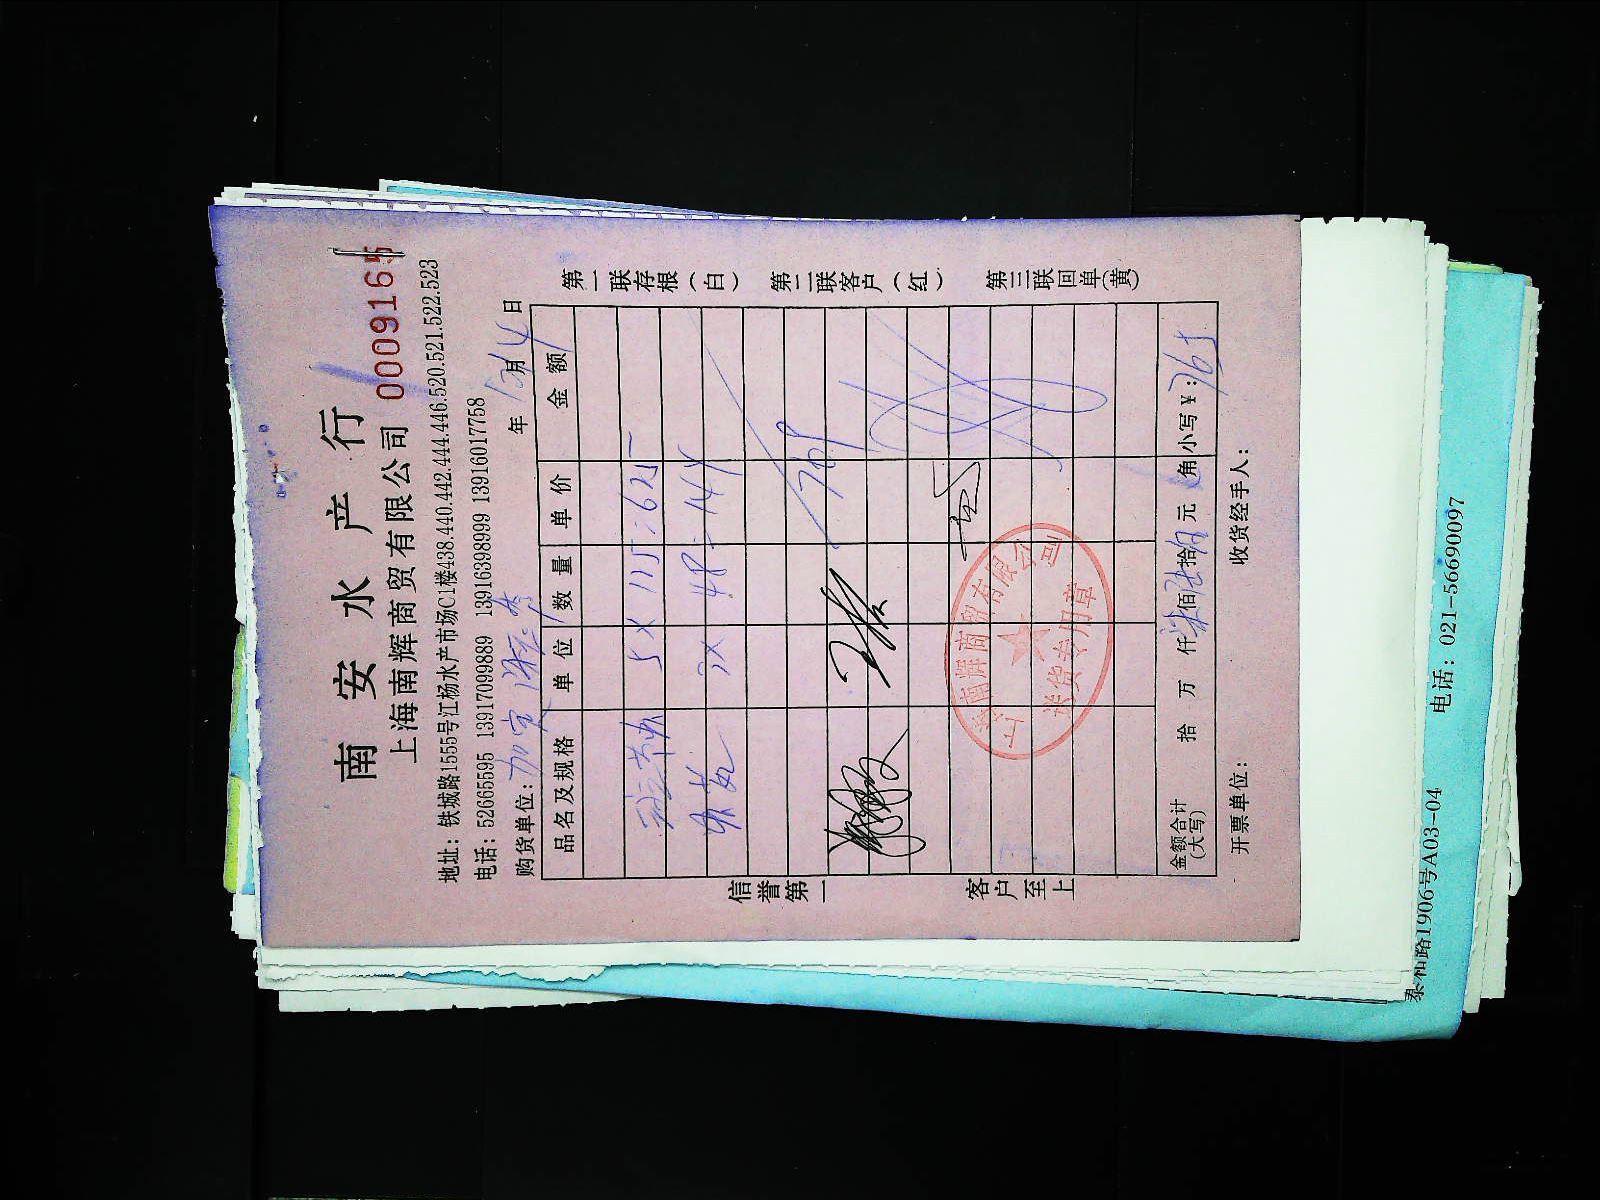 南安水产行
上海南辉商贸有限公司 0009165
地址：铁城路1555号江杨水产市场C1楼438.440.442.444.446.520.521.522.523
电话：52665595 13917099889 13916398999 13916017758
购货单位：加 年 12月14日
品名及规格 单位 数量 单价 金额
5 X 115 = 625
3X 48 = 144
769
金额合计(大写) 拾 万 仟 柒佰陆拾 元 角 小写¥：769
开票单位： 收货经手人：
信誉第一
客户至上
第一联存根(白)
第二联客户(红)
第三联回单(黄)
上海南辉商贸有限公司
送货专用章
泰和路1906号A03-04 电话：021-56690097